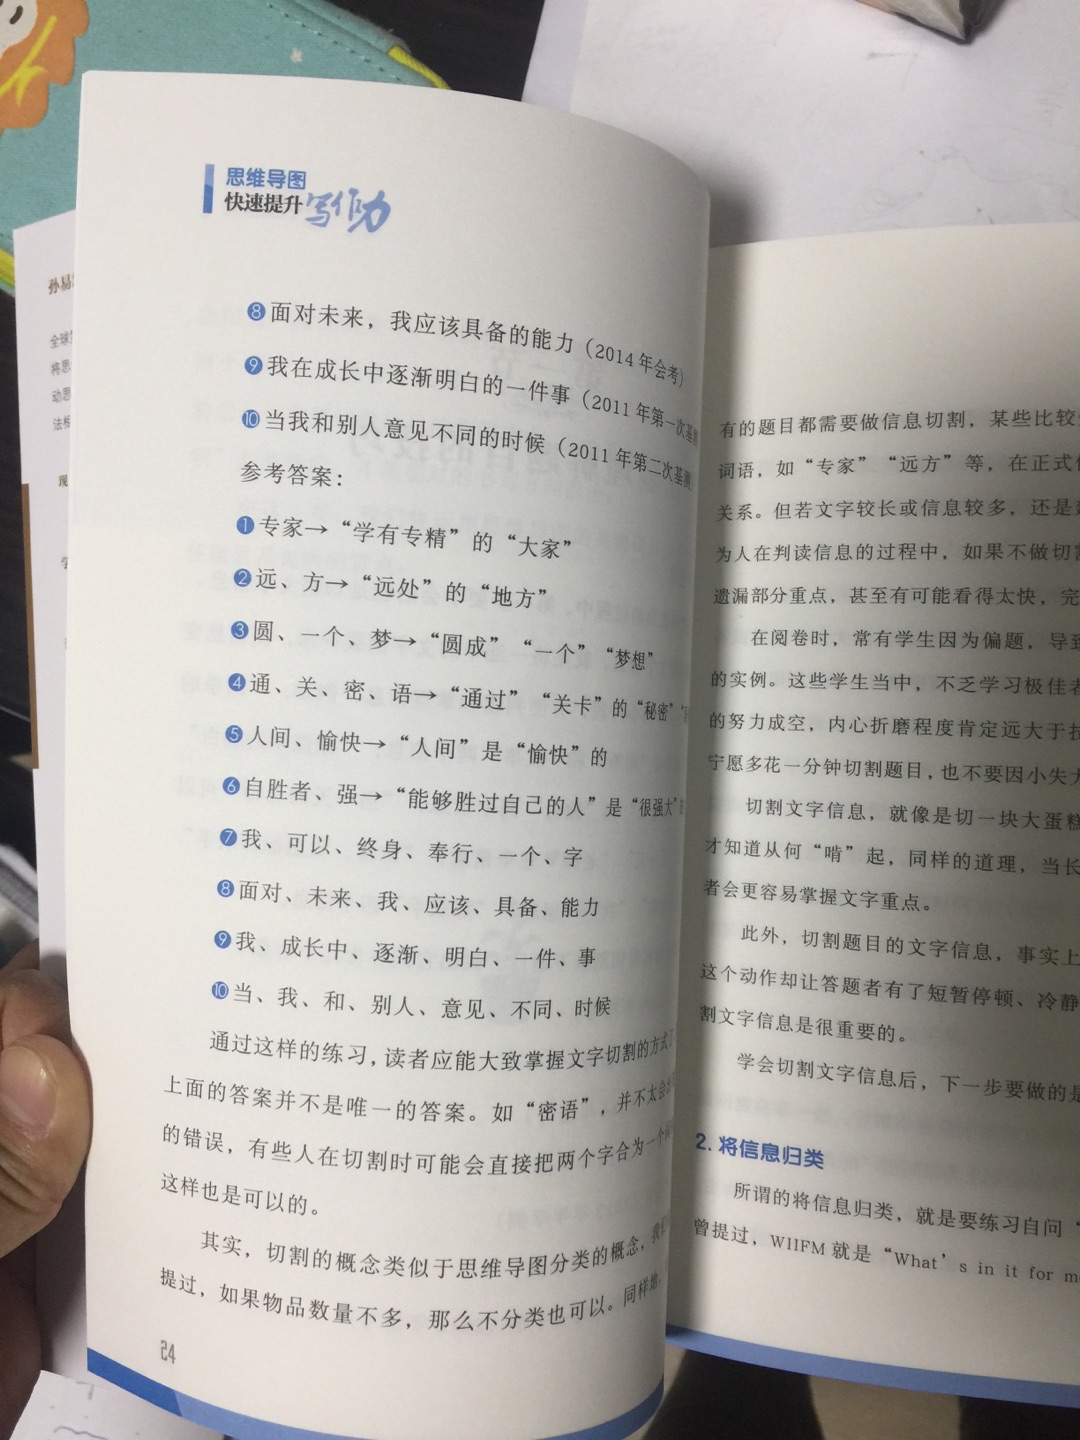 思维导图
快速提升写作力
❽面对未来，我应该具备的能力（2014年会考）
❾我在成长中逐渐明白的一件事（2011年第一次基测
❿当我和别人意见不同的时候（2011年第二次基测）
参考答案：
❶专家→“学有专精”的“大家”
❷远、方→“远处”的“地方”
❸圆、一个、梦→“圆成”“一个”“梦想”
❹通、关、密、语→“通过”“关卡”的“秘密”
❺人间、愉快→“人间”是“愉快”的
❻自胜者、强→“能够胜过自己的人”是“很强大”
❼我、可以、终身、奉行、一个、字
❽面对、未来、我、应该、具备、能力
❾我、成长中、逐渐、明白、一件、事
❿当、我、和、别人、意见、不同、时候
通过这样的练习，读者应能大致掌握文字切割的方式
上面的答案并不是唯一的答案。如“密语”，并不太会
的错误，有些人在切割时可能会直接把两个字合为一个
这样也是可以的。
其实，切割的概念类似于思维导图分类的概念，我
提过，如果物品数量不多，那么不分类也可以。同样
24
孙易
全球
将思
动思
法
现
学
有的题目都需要做信息切割，某些比较
词语，如“专家”“远方”等，在正式
关系。但若文字较长或信息较多，还是
为人在判读信息的过程中，如果不做切
遗漏部分重点，甚至有可能看得太快，完
在阅卷时，常有学生因为偏题，导致
的实例。这些学生当中，不乏学习极佳者
的努力成空，内心折磨程度肯定远大于
宁愿多花一分钟切割题目，也不要因小失大
切割文字信息，就像是切一块大蛋糕
才知道从何“啃”起，同样的道理，当长
者会更容易掌握文字重点。
此外，切割题目的文字信息，事实上
这个动作却让答题者有了短暂停顿、冷静
割文字信息是很重要的。
学会切割文字信息后，下一步要做的是
2. 将信息归类
所谓的将信息归类，就是要练习自问“
曾提过，WIIFM 就是“What’s in it for me